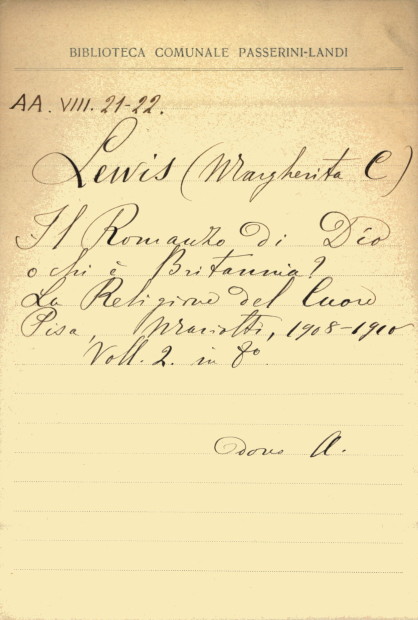 BIBLIOTECA COMUNALE PASSERINI-LANDI
AA. VIII. 21-22.
Lewis (Margherita C)
Il Romanzo di Dio
o chi è Britannia?
La Religione del Cuore
Pisa, Mariotti, 1908-1910
Voll. 2. in 8º.
Dono A.